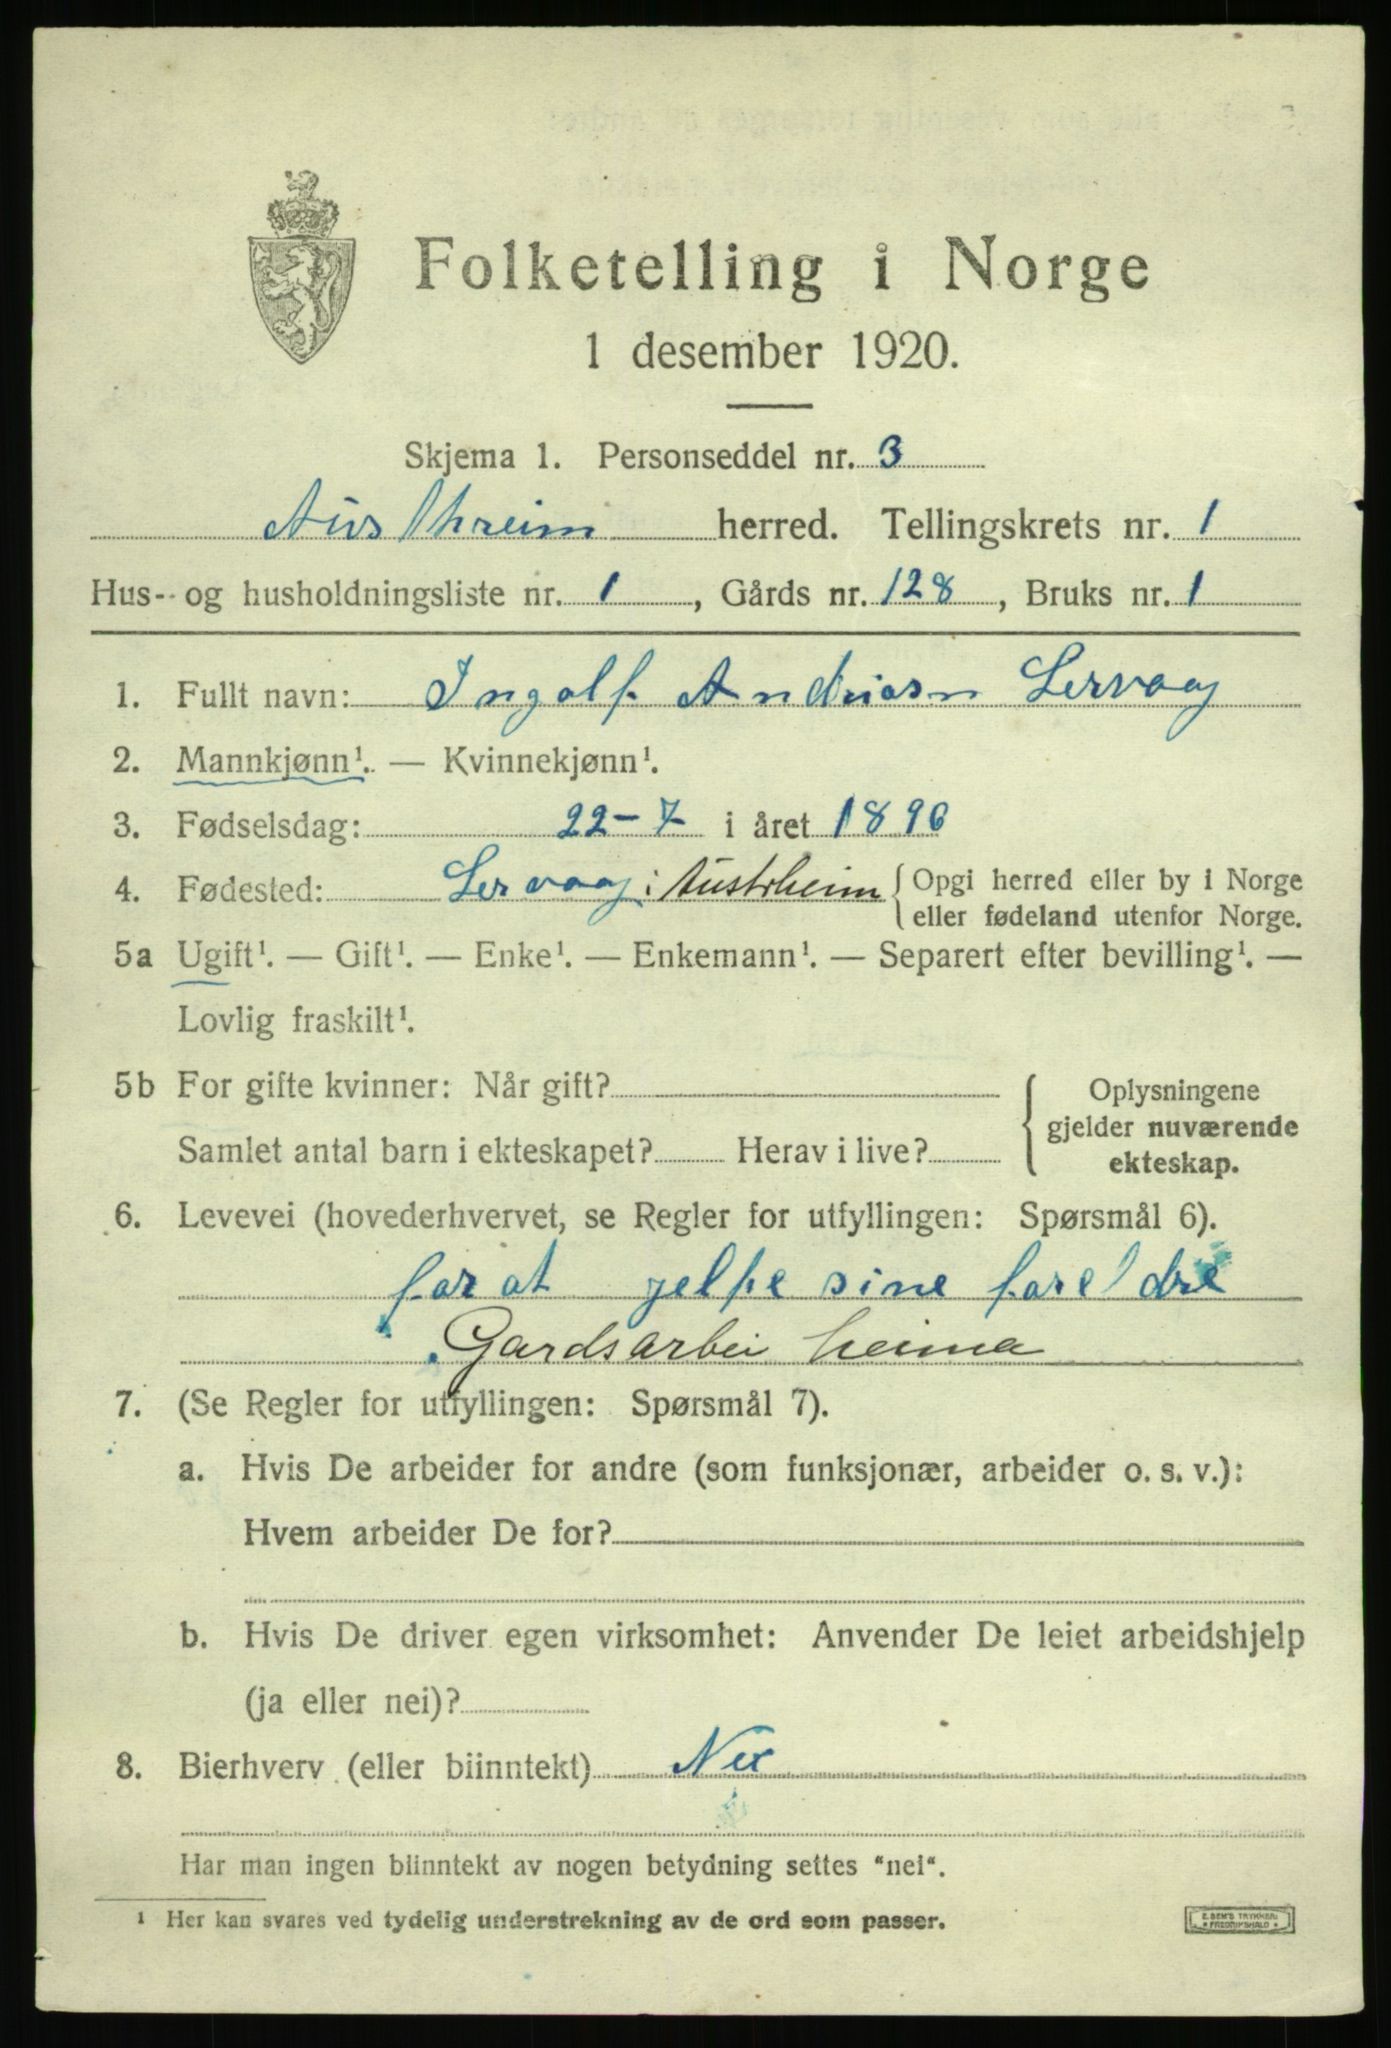 Folketelling i Norge
1 desember 1920.
Skjema 1. Personseddel nr. 3
Austhreim herred. Tellingskrets nr. 1
Hus- og husholdningsliste nr. 1, Gårds nr. 128, Bruks nr. 1
1. Fullt navn: Ingolf Andriasn Lervaag
2. Mannkjønn¹. — Kvinnekjønn¹.
3. Fødselsdag: 22-7 i året 1896
4. Fødested: Lervaag i Austrheim { Opgi herred eller by i Norge
eller fødeland utenfor Norge.
5a Ugift¹. — Gift¹. — Enke¹. — Enkemann¹. — Separert efter bevilling¹. —
Lovlig fraskilt¹.
5b For gifte kvinner: Når gift?
Samlet antal barn i ekteskapet? Herav i live?
Oplysningene
gjelder nuværende
ekteskap.
6. Levevei (hovederhvervet, se Regler for utfyllingen: Spørsmål 6).
for at jelpe sine foreldre
Gardsarbei heima
7. (Se Regler for utfyllingen: Spørsmål 7).
a. Hvis De arbeider for andre (som funksjonær, arbeider o. s. v.):
Hvem arbeider De for?
b. Hvis De driver egen virksomhet: Anvender De leiet arbeidshjelp
(ja eller nei)?
8. Bierhverv (eller biinntekt) Nei
Har man ingen biinntekt av nogen betydning settes "nei".
¹ Her kan svares ved tydelig understrekning av de ord som passer.
E. SEM'S TRYKKERI
FREDRIKSHALD